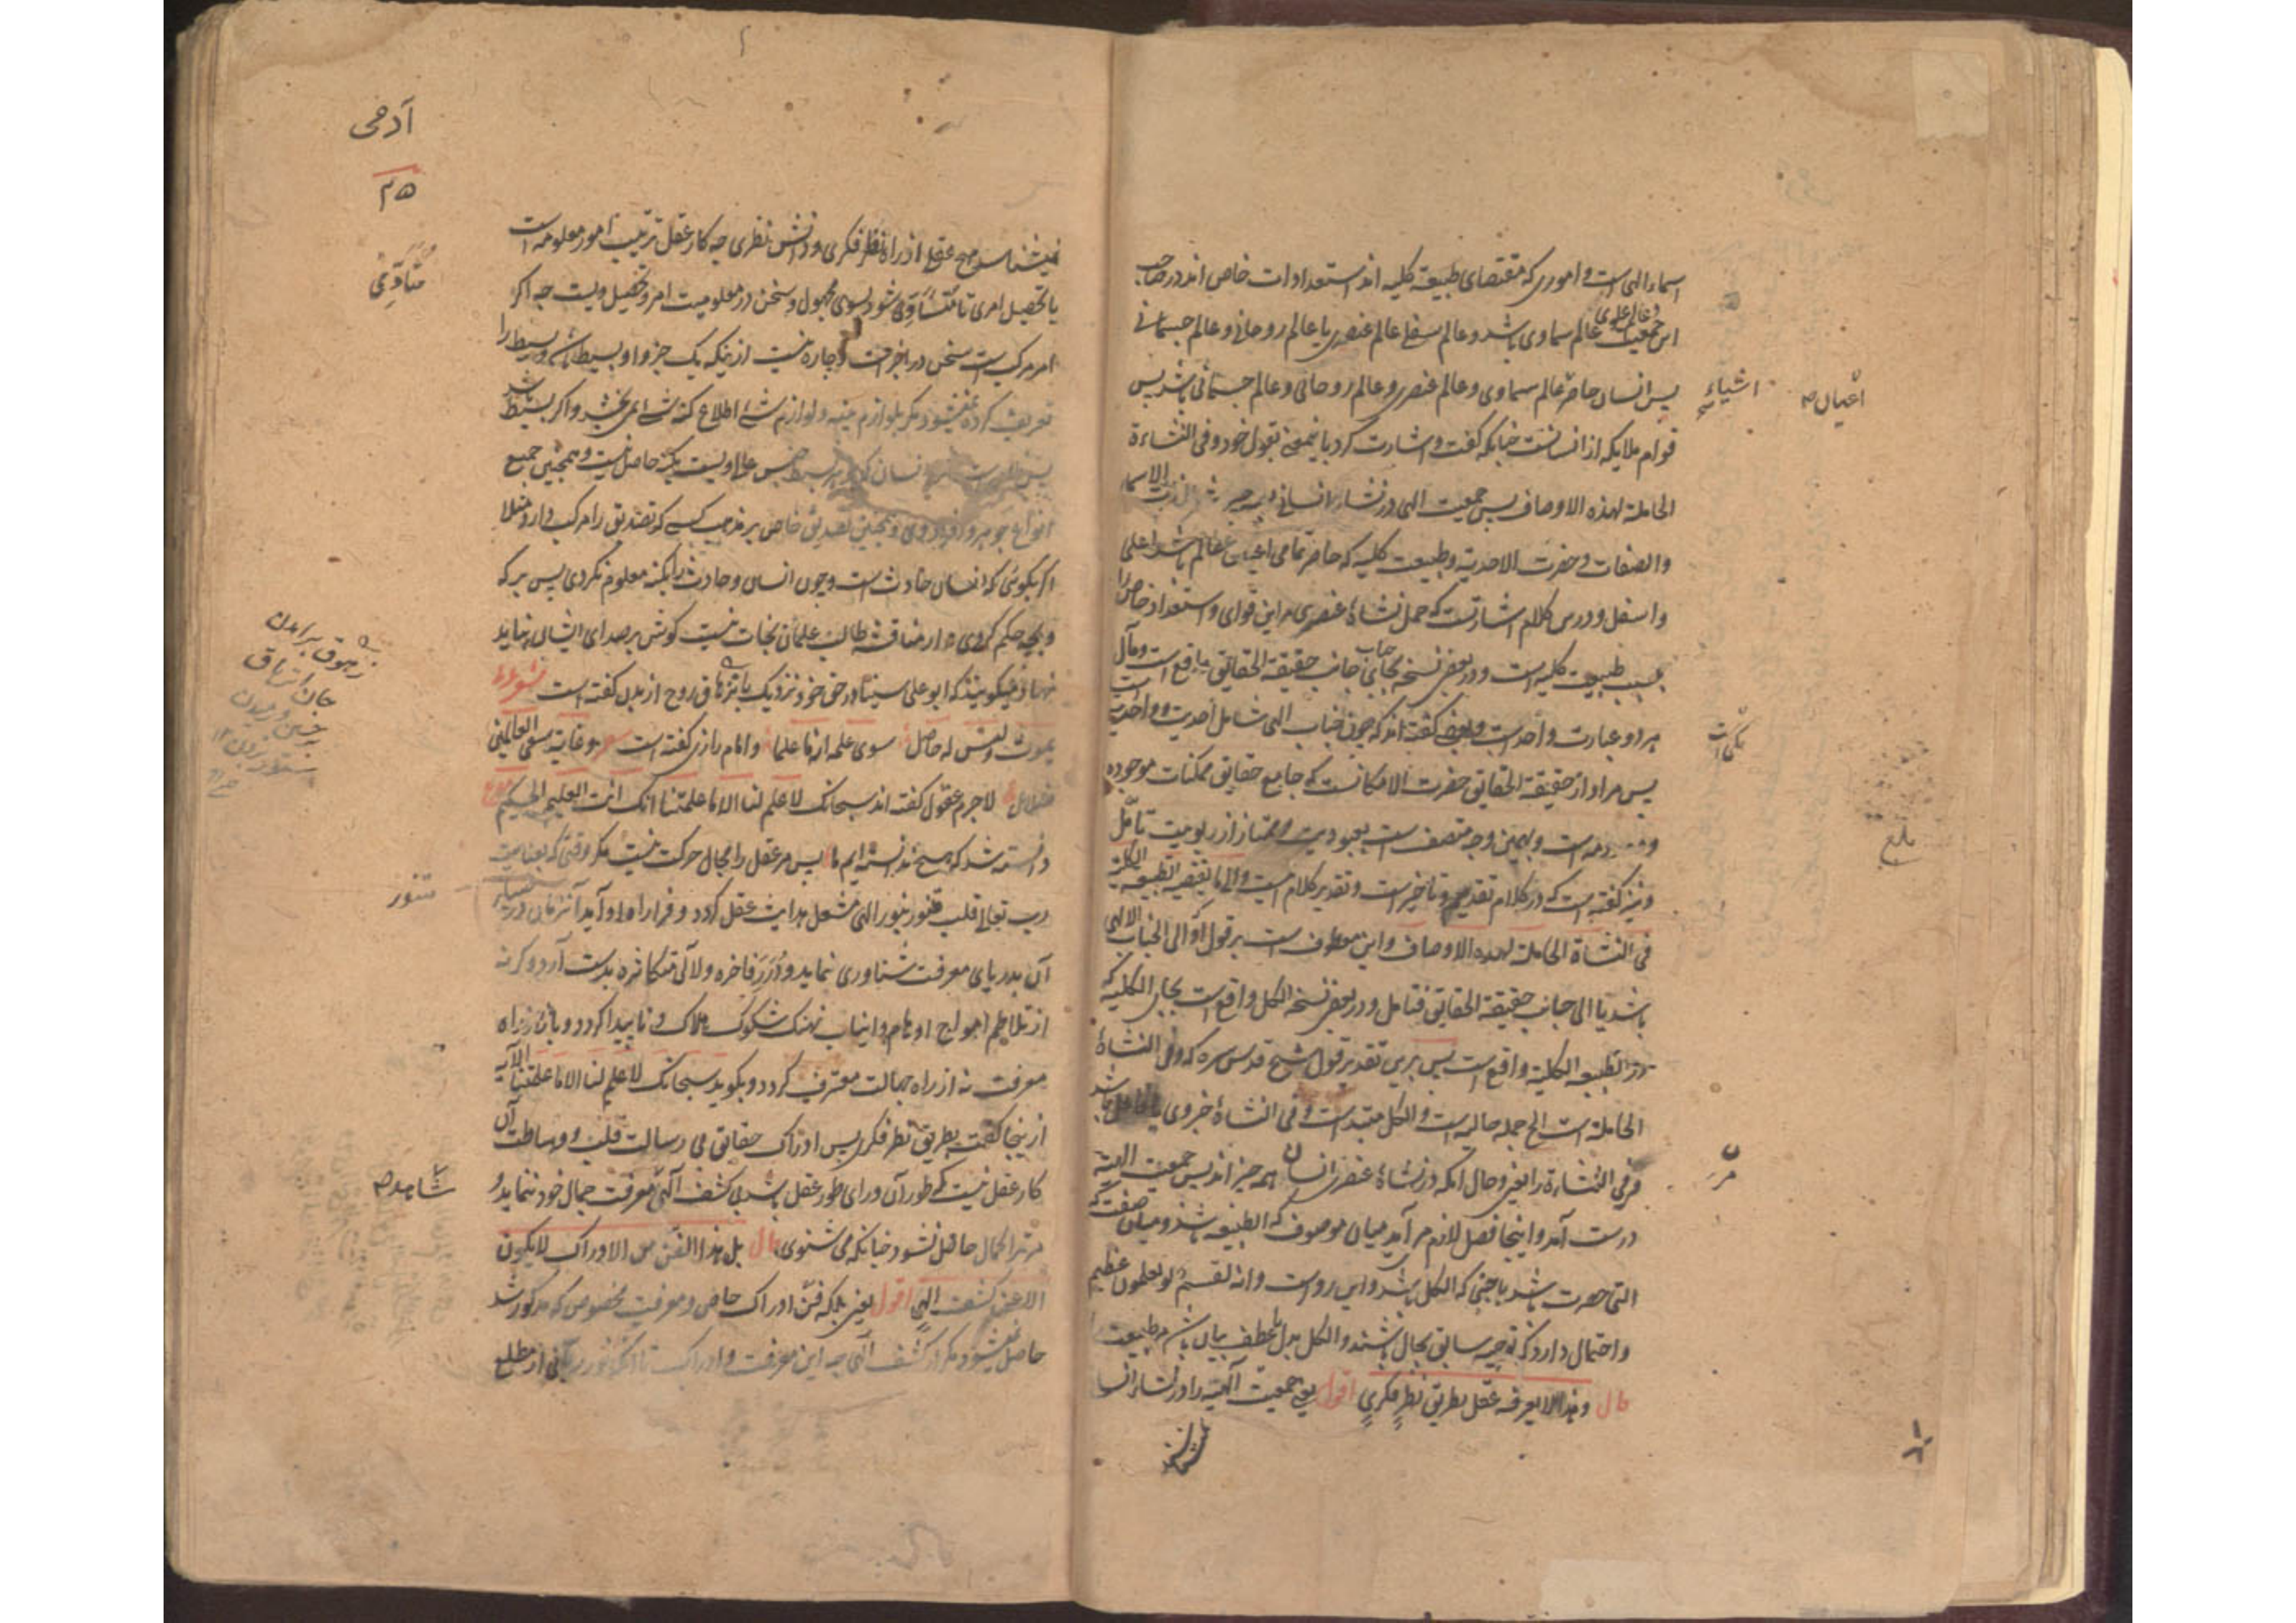 اسماء الهی است و اموری که مقتضای طبیعة کلیه اند استعدادات خاص اند در صاحب
این جمعیت عالم سماوی باشد و عالم سفلی عالم عنصری یا عالم روحانی و عالم جسمانی
و عالم علوی
پس انسان حاصر عالم سماوی و عالم عنصری و عالم روحانی و عالم جسمانی باشد پس
اشیاء
اعیان
قوام ملایکه از انسانست چنانکه گفت و اشارت کرد باینمعنی بقول خود و فی النشاءة
الحاملة لهذه الاوصاف پس جمعیت الهی در نشاء انسانی
والصفات و حضرت الاحدیة و طبیعت کلیه که حاصر تمامی اعیان عالم باشد اعلی
و اسفل و درین کلام اشارتست که حمل نشاة عنصری مر این قوای و استعداد خاص را
بسبب طبیعت کلیه است و در بعض نسخه بجای جناب جانب حقیقة الحقایق واقع است و مآل
هر دو عبارت واحد است و بعضی گفته اند که چون جناب الهی شامل احدیت و واحدیت است
پس مراد از حقیقة الحقایق حضرت الامکانست که جامع حقایق ممکنات موجوده
و معدومه است و بهمین وجه متصف است بعبودیت و ممتاز از ربوبیت تأمل
بلغ
و نیز گفته است که در کلام تقدیم و تاخیر است و تقدیر کلام اینست و الی ما تقتضیه الطبیعة الکلیة
فی النشاة الحاملة لهذه الاوصاف و این معطوف است بر قول او الی الجناب الالهی
باشد یا الی جانب حقیقة الحقایق فتامل و در بعض نسخه الکل واقع است بجای الکلیه که
در الطبیعه الکلیة واقع است پس برین تقدیر قول شیخ قدس سره که و فی النشاة
الحاملة است الخ جمله حالیه است و الکل مبتداست و فی النشاة خبر وی
در نشاة عنصری انسان همه چیز اند پس جمعیت الهیة
درست آمد و اینجا فصل لازم می آید میان موصوف که الطبیعه باشد و میان صفت که
التی حصرت باشد باجنبی که الکل باشد و این رواست وانه لقسم لو تعلمون عظیم
و احتمال دارد که توجیه سابق بحال باشد و الکل بدل یا عطف بیان باشد مر طبیعت را
قال و هذا لا یعرفه عقل بطریق نظر فکری اقول یعنی جمعیت الهیه را در نشاء انسانی
آدمی
۳۵
نمیشناسد هیچ عقلی از راه نظر فکری و دانش نظری چه کار عقل ترتیب امور معلومه است
یا تحصیل امری تا متأدی شود بسوی مجهول و سخن در معلومیت امر و تحصیل ویست چه اگر
متأدی
امر مرکب است سخن در اجزاست و چاره نیست از اینکه یک جزو او بسیط باشد و بسیط را
تعریف کرده نمیشود مگر بلوازم بینه و لوازم شئ اطلاع کنه شئ نمی بخشد و اگر بسیط باشد
انواع جوهر و افراد وی و همچنین تصدیق خاص بر مذهب کسی که تصدیق را مرکب دارد مثلا
اگر بگوئی که انسان حادث است و چون انسان و حادث را بکنه معلوم نکردی پس بر که
و بچه حکم کردی و از مناقشه طالب علمان نجات نیست گوش بر صدای ایشان نباید
نهاد و میگویند که ابو علی سینا در حق خود نزدیک بانزهاق روح از بدن گفته است شعر
یموت ولیس له حاصل سوی علمه انه ما علما و امام رازی گفته است وغایة سعی العالمین
ضلال لاجرم عقول گفته اند سبحانک لا علم لنا الا ما علمتنا انک انت العلیم الحکیم
دانسته شد که هیچ ندانسته ایم ما پس مر عقل را مجال حرکت نیست مگر وقتی که بعنایت
رب تعالی قلب متنور بنور الهی مشعل هدایت عقل گردد و فرا راه او آید آنزمان
متنور
آن بدریای معرفت شناوری نماید و درر فاخره و لآلی متکاثره بدست آرد و گرنه
از تلاطم امواج اوهام و انیاب نهنگ شکوک هلاک و ناپیدا گردد و باز از راه
معرفت نه از راه جهالت معترف گردد و بگوید سبحانک لا علم لنا الا ما علمتنا الآیه
ازینجا گفت بطریق نظر فکری پس ادراک حقایق بی رسالت قلب و وساطت آن
کار عقل نیست که طور آن ورای طور عقل باشد بی کشف الهی معرفت جمال خود ننماید و
شاهد
مرتبۀ کمال حاصل نشود چنانکه می شنوی قال بل هذا الفن من الادراک لا یکون
الا عن کشف الهی اقول یعنی بلکه فن ادراک خاص و معرفت مخصوص که مذکور شد
حاصل نمیشود مگر از کشف الهی چه این معرفت و ادراک تا آنکه نور ربانی از مطلع